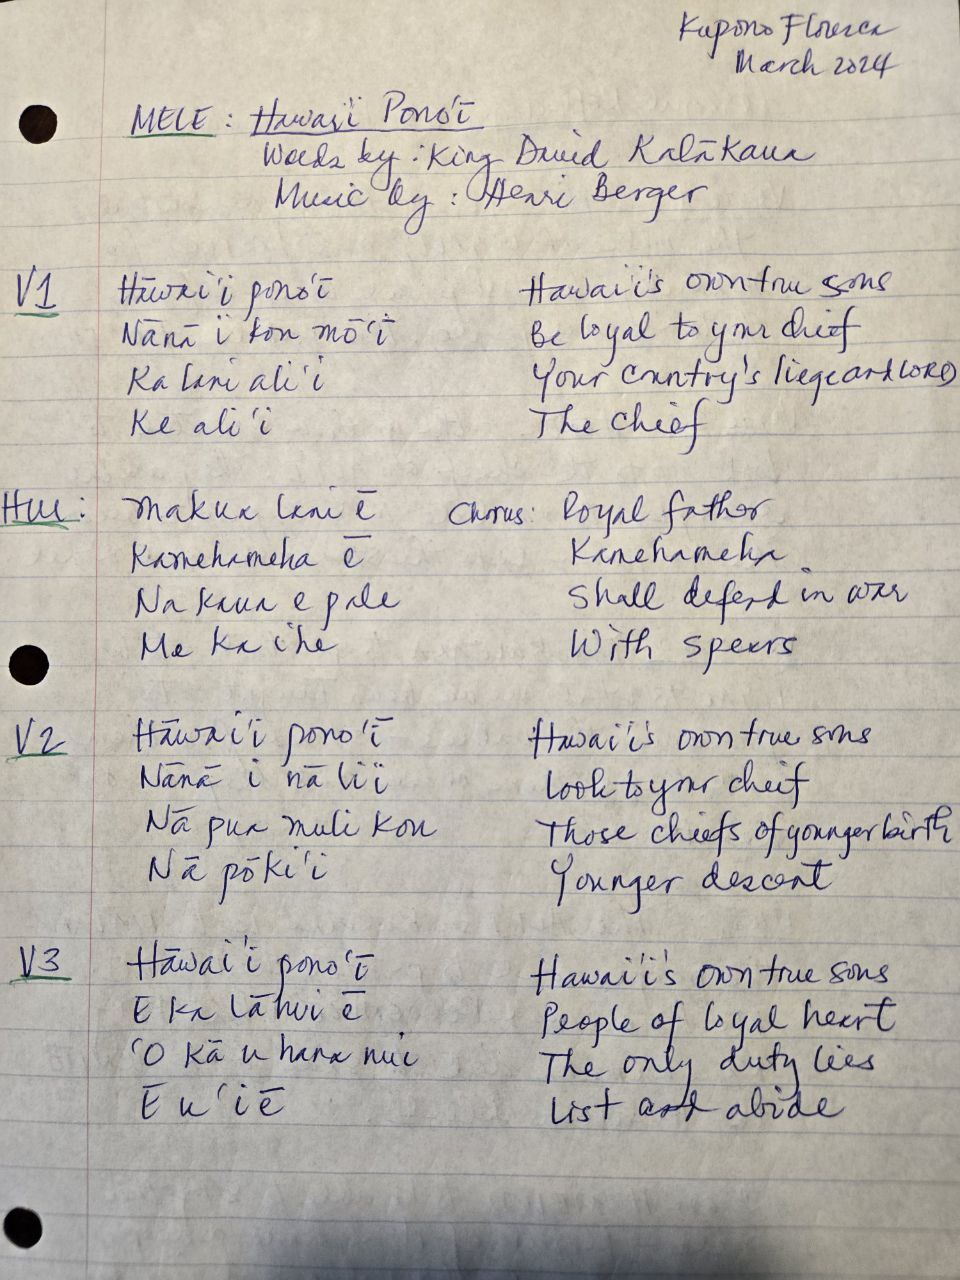 Kupono Floresca
March 2024
MELE : Hawai'i Pono'ī
Words by : King David Kalākaua
Music by : Henri Berger
V1
Hāwai'i pono'ī
Nānā i kou mō'ī
Ka lani ali'i
Ke ali'i
Hawai'i's own true sons
Be loyal to your chief
Your country's liege and LORD
The chief
Hui:
Makua lani ē
Kamehameha ē
Na kaua e pale
Me ka ihe
Chorus: Royal father
Kamehameha
Shall defend in war
With spears
V2
Hāwai'i pono'ī
Nānā i nā li'i
Nā pua muli kou
Nā pōki'i
Hawai'i's own true sons
Look to your cheif
Those chiefs of younger birth
Younger descent
V3
Hāwai'i pono'ī
E ka lāhui ē
'O kā u hana nui
Ē u'i ē
Hawai'i's own true sons
People of loyal heart
The only duty lies
List and abide